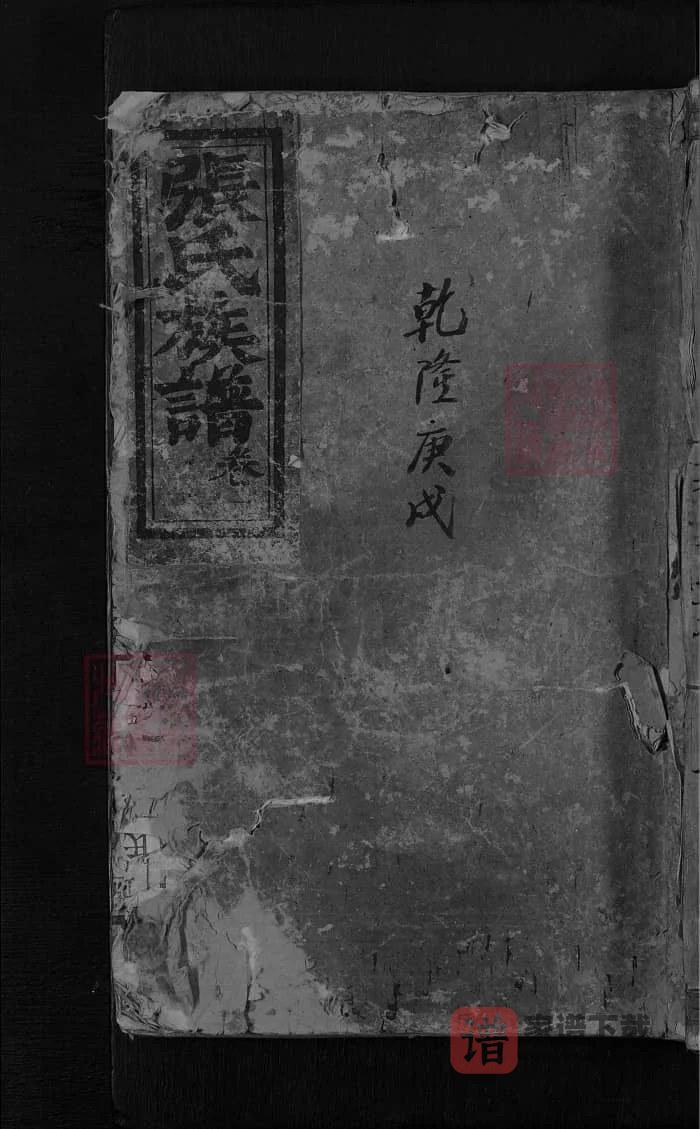 乾隆庚戌
張氏族譜
卷
譜
家谱下载